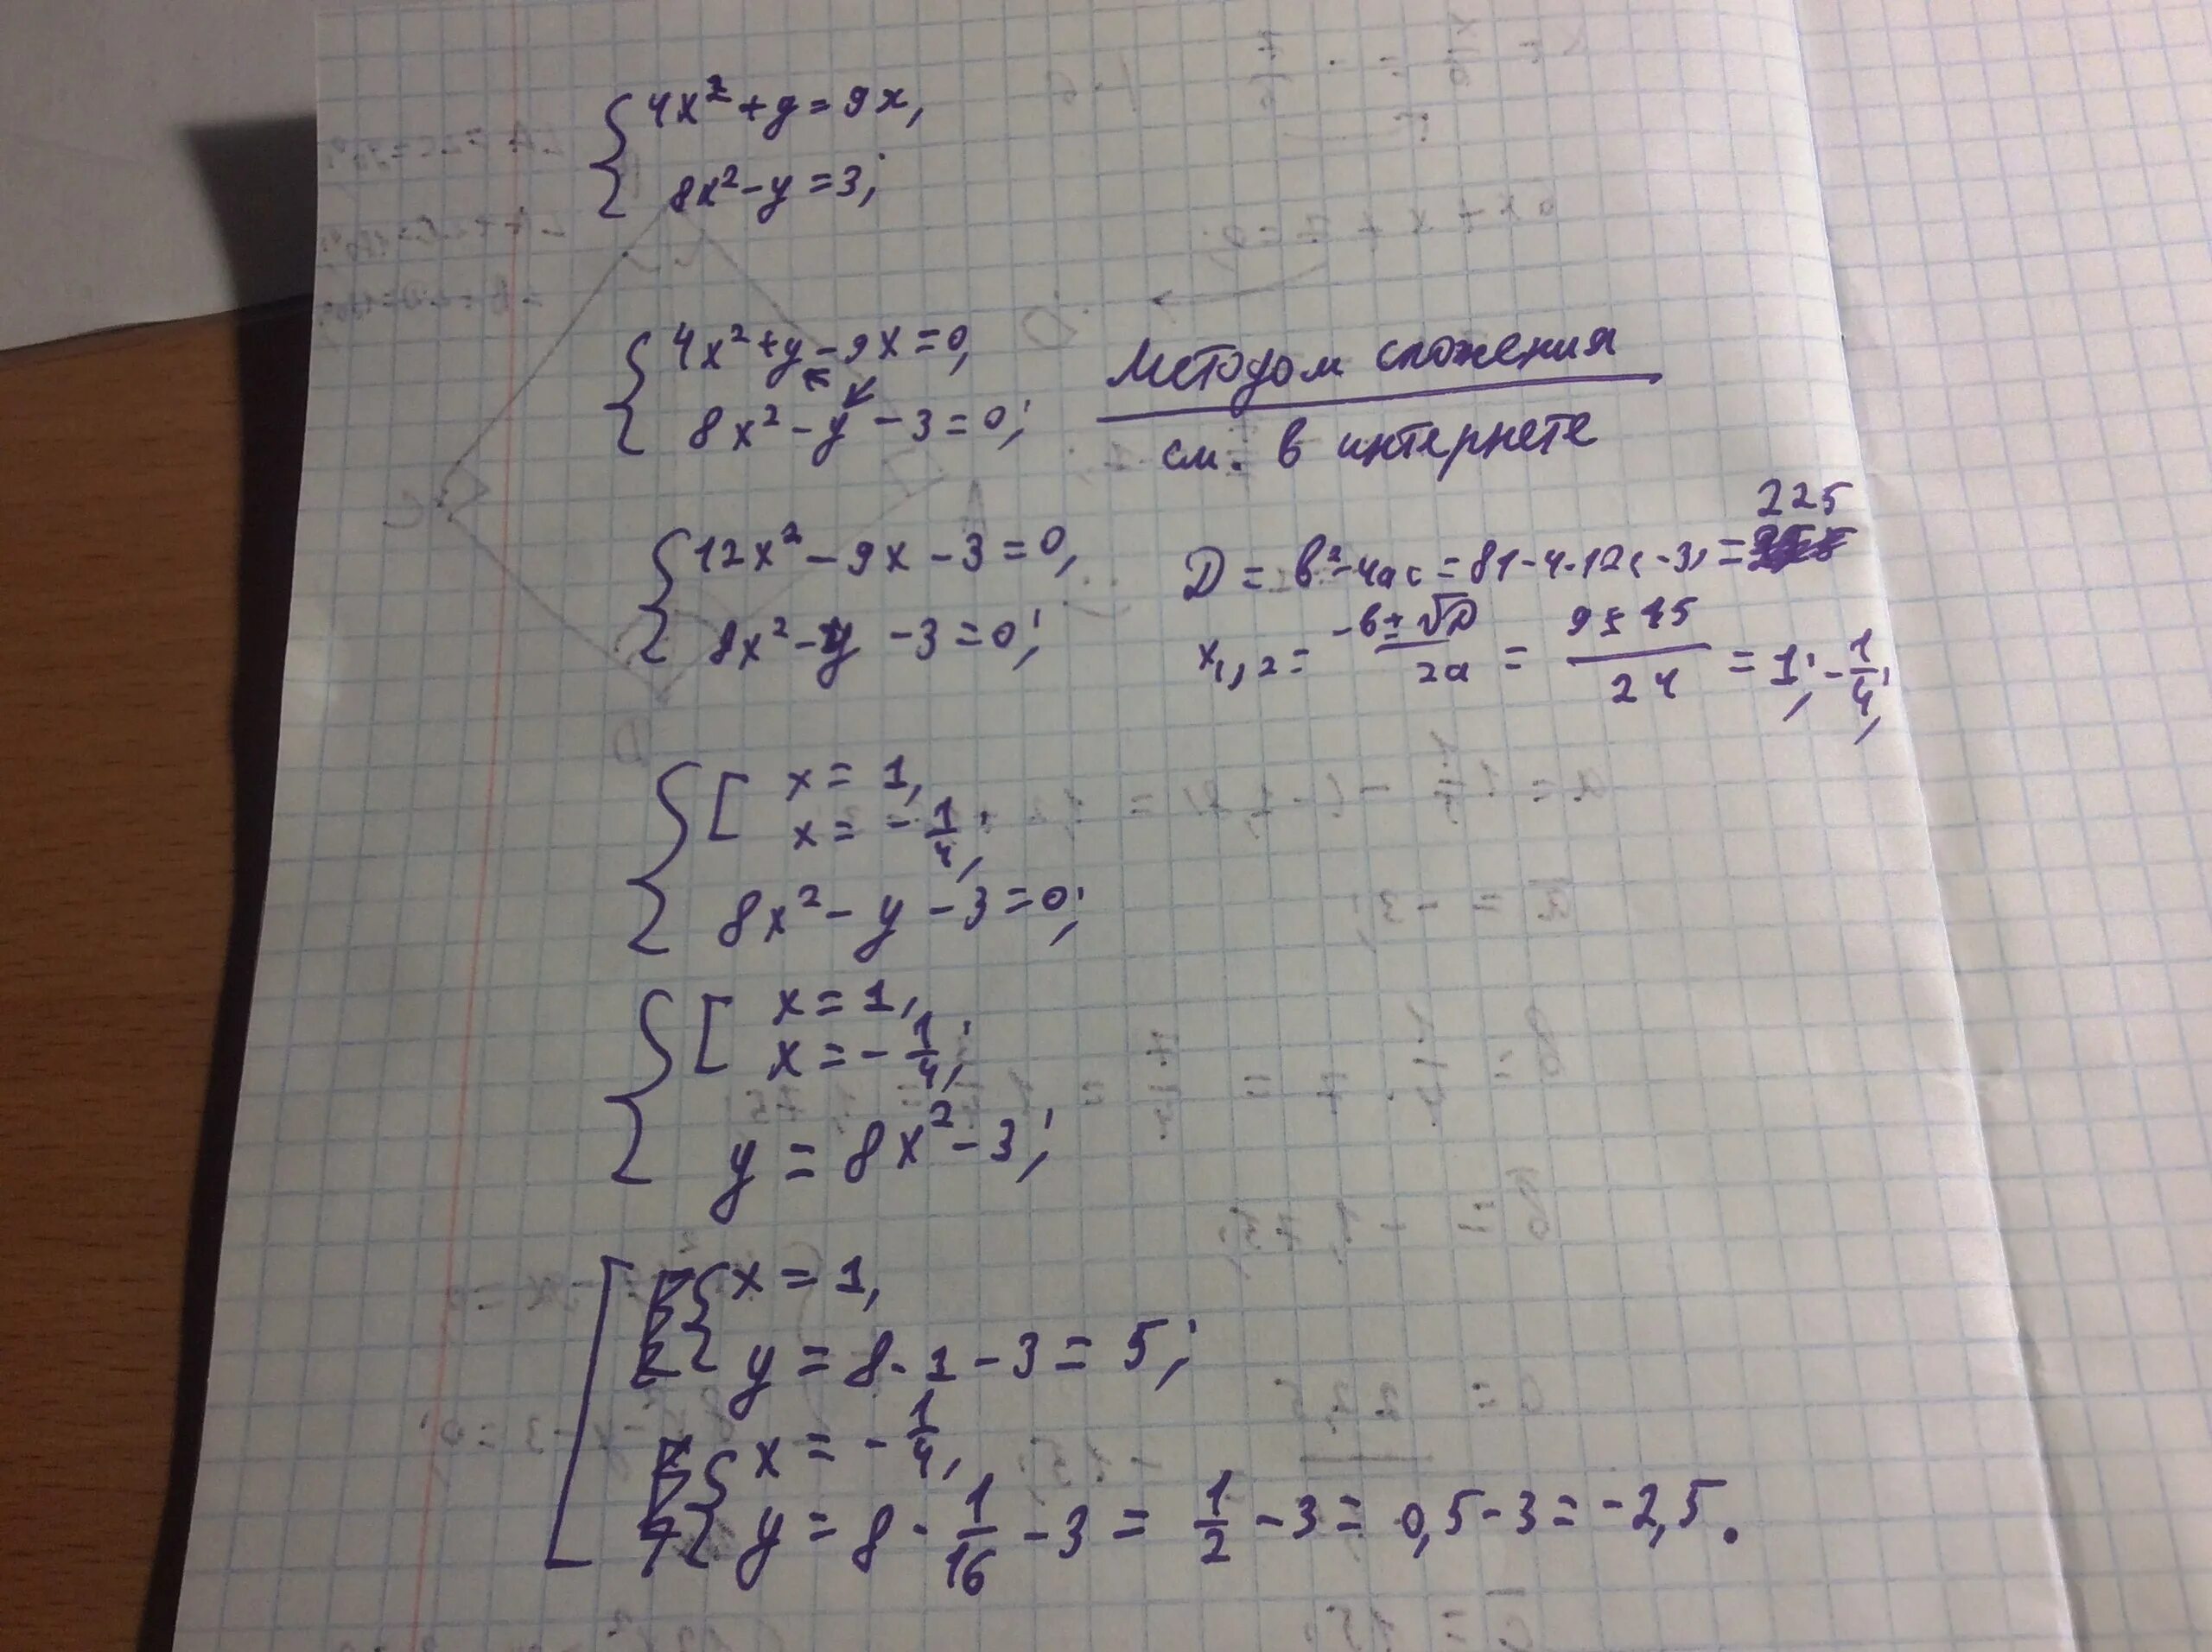 { 4x² + y = 9x,
8x² - y = 3;
{ 4x² + y - 9x = 0,
8x² - y - 3 = 0;
Методом сложения
см. в интернете
{ 12x² - 9x - 3 = 0,
8x² - y - 3 = 0;
D = b² - 4ac = 81 - 4·12(-3) = 225
x₁,₂ = (-b ± √D)/2a = (9 ± 15)/24 = 1; -1/4;
{ [ x = 1,
x = -1/4;
8x² - y - 3 = 0;
{ [ x = 1,
x = -1/4;
y = 8x² - 3;
[ { x = 1,
y = 8·1 - 3 = 5;
{ x = -1/4,
y = 8·1/16 - 3 = 1/2 - 3 = 0,5 - 3 = -2,5.